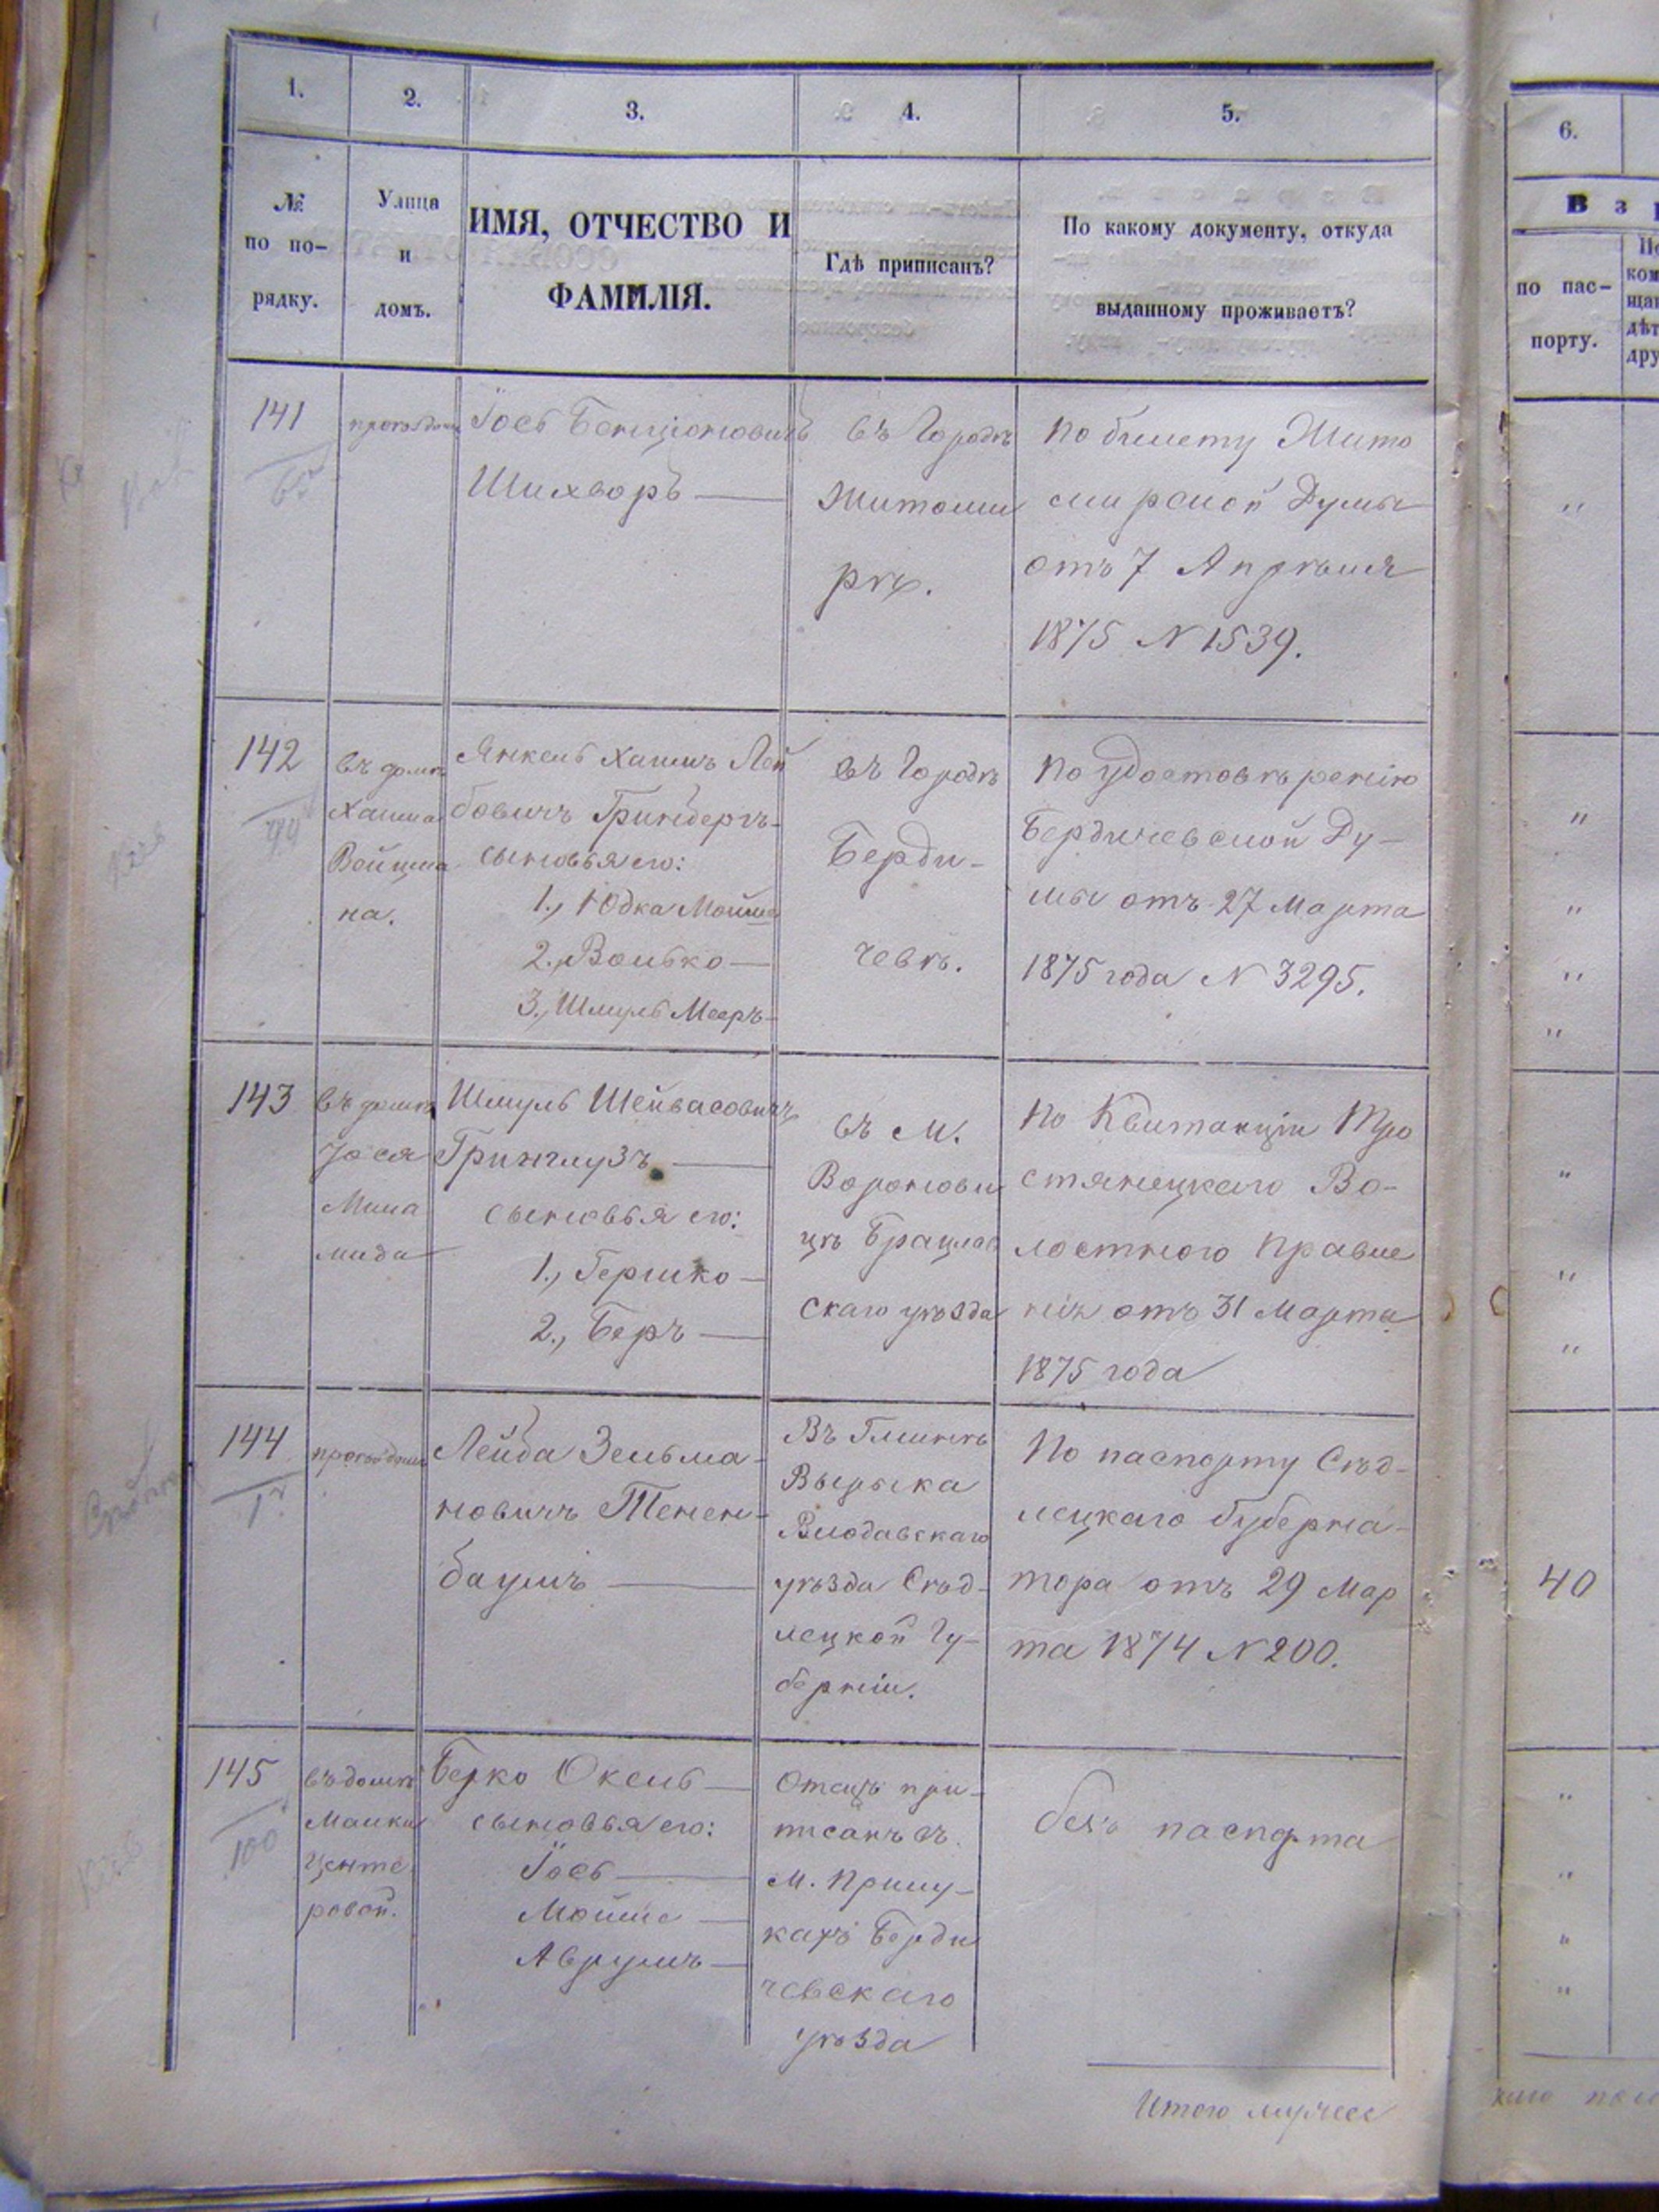 1.
2.
3.
4.
5.
6.
№
по по-
рядку.
Улица
и
домъ.
ИМЯ, ОТЧЕСТВО И
ФАМИЛІЯ.
Гдѣ приписанъ?
По какому документу, откуда
выданному проживаетъ?
В з р
по пас-
порту.
141
Іось Бенціоновичъ
Шихворъ
въ Городѣ
Житоми
рѣ.
по билету Жито
мирской Думы
отъ 7 Апрѣля
1875 N 1539.
142
въ домѣ
Хаима
Вейцма
на.
Янкель Хаимъ Лей
бовичъ Гринбергъ
сыновья его:
1., Юдка Мойше
2., Волько
3., Шмуль Мееръ
въ Городѣ
Берди-
чевѣ.
по удостовѣренію
Бердичевской Ду-
мы отъ 27 Марта
1875 года N 3295.
143
въ домѣ
Іося
Мила
мида
Шмуль Шейвасовичъ
Гринглузъ
сыновья его:
1., Гершко
2., Беръ
въ М.
Воронови
цѣ Брацлав
скаго уѣзда
По Квитанціи Тро
стянецкаго Во-
лостного Правле
нія отъ 31 Марта
1875 года
144
Лейба Зельма-
новичъ Тенен-
баумъ
Въ Гминѣ
Вырыка
Влодавскаго
уѣзда Сѣд-
лецкой Гу-
берніи.
По паспорту Сѣд-
лецкаго Губерна-
тора отъ 29 Мар
та 1874 N 200.
40
145
100
въ домѣ
Малки
Центе
ровой.
Берко Оксль
сыновья его:
Іось
Мойше
Аврумъ
Отецъ при-
писанъ въ
М. Прилу-
кахъ Берди
чевскаго
уѣзда
безъ паспорта
Итого мужес